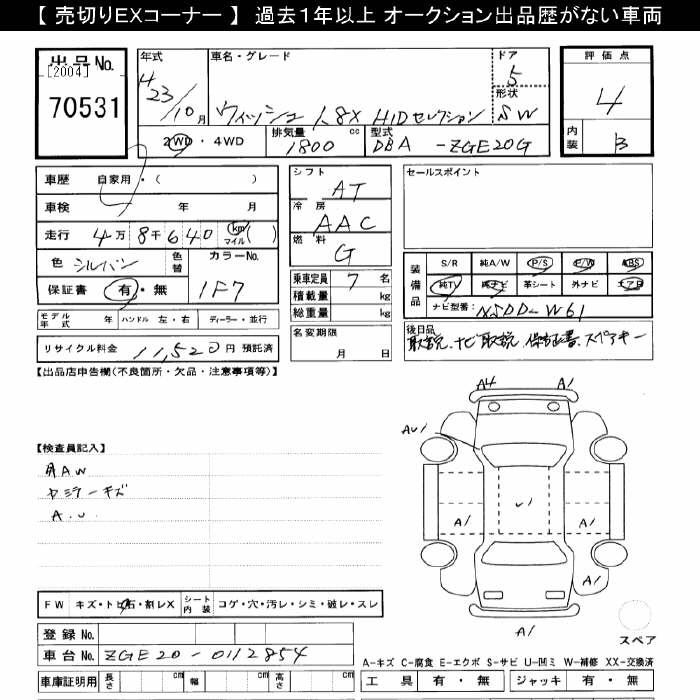 【 売切りEXコーナー 】 過去１年以上 オークション出品歴がない車両
出品No.
[2004]
70531
年式
H23/10月
車名・グレード
ウィッシュ 1.8X HIDセレクション
ドア
5
形状
SW
評価点
4
内装
B
2WD・4WD
排気量
1800 cc
型式
DBA -ZGE20G
車歴 自家用・( )
車検 年 月
走行 4万8千640 km マイル( )
色 シルバー 色替
カラーNo.
1F7
保証書 有・無
モデル年式 年 ハンドル 左・右 ディーラー・並行
リサイクル料金 11,520円 預託済
シフト
AT
冷房
AAC
燃料
G
乗車定員 7 名
積載量 kg
総重量 kg
名変期限
月 日
セールスポイント
装備品
S/R 純A/W P/S P/W ABS
純TV 純ナビ 革シート 外ナビ エアB
ナビ型番: NSDD-W61
後日品
取説、ナビ取説、保証書、スペアキー
【出品店申告欄(不良箇所・欠品・注意事項等)】
【検査員記入】
A.U
A4 A1
AU1
U1
A1 A1
A1
A1
スペア
FW キズ・トビ石・割レX シート内装 コゲ・穴・汚レ・シミ・破レ・スレ
登録No.
車台No. ZGE20-0112854
車庫証明用 長さ cm 幅 cm 高さ cm
A-キズ C-腐食 E-エクボ S-サビ U-凹ミ W-補修 XX-交換済
工具 有・無 ジャッキ 有・無